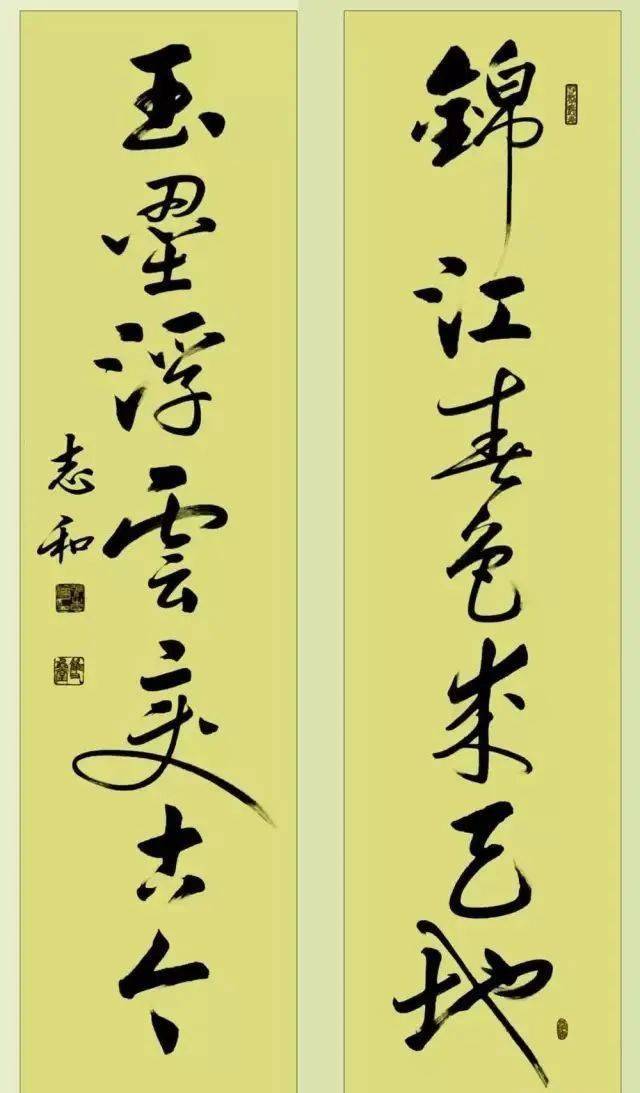 錦江春色来天地
玉壘浮雲變古今
志和